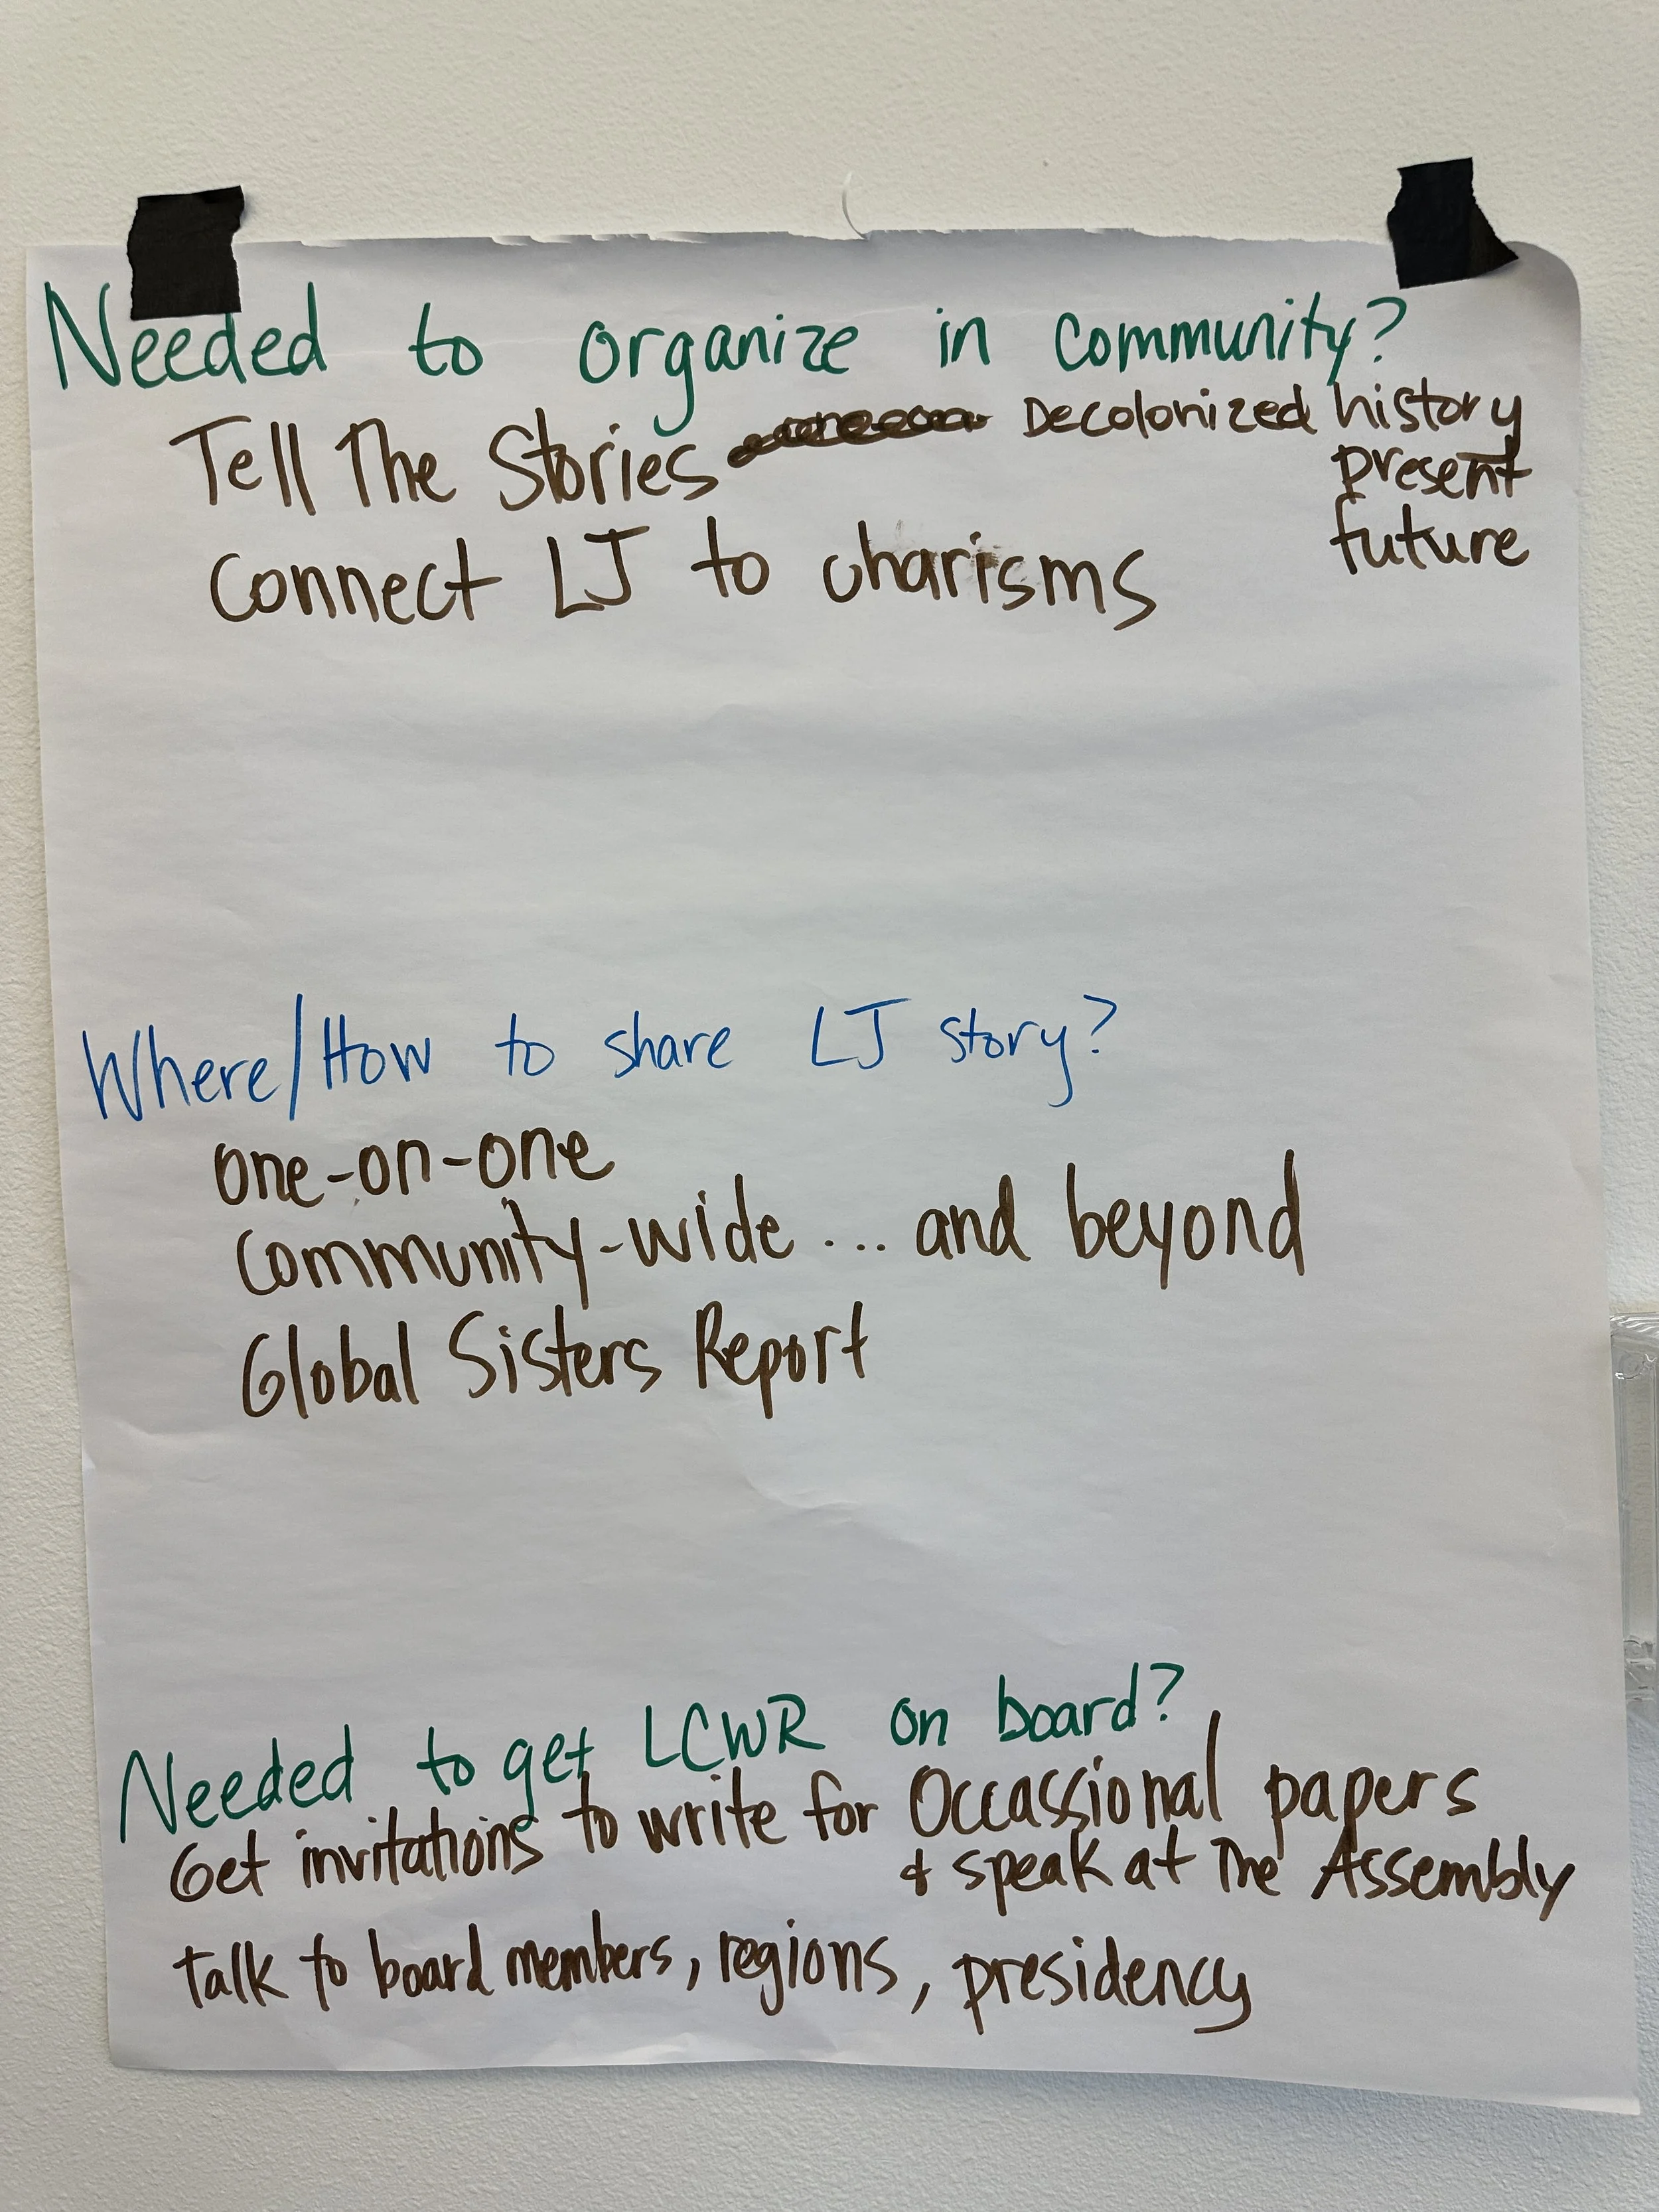 Needed to organize in community?
Tell The Stories Decolonized history
present
future
Connect LJ to charisms
Where/How to share LJ story?
one-on-one
Community-wide ... and beyond
Global Sisters Report
Needed to get LCWR on board?
Get invitations to write for Occassional papers
& speak at The Assembly
talk to board members, regions, presidency